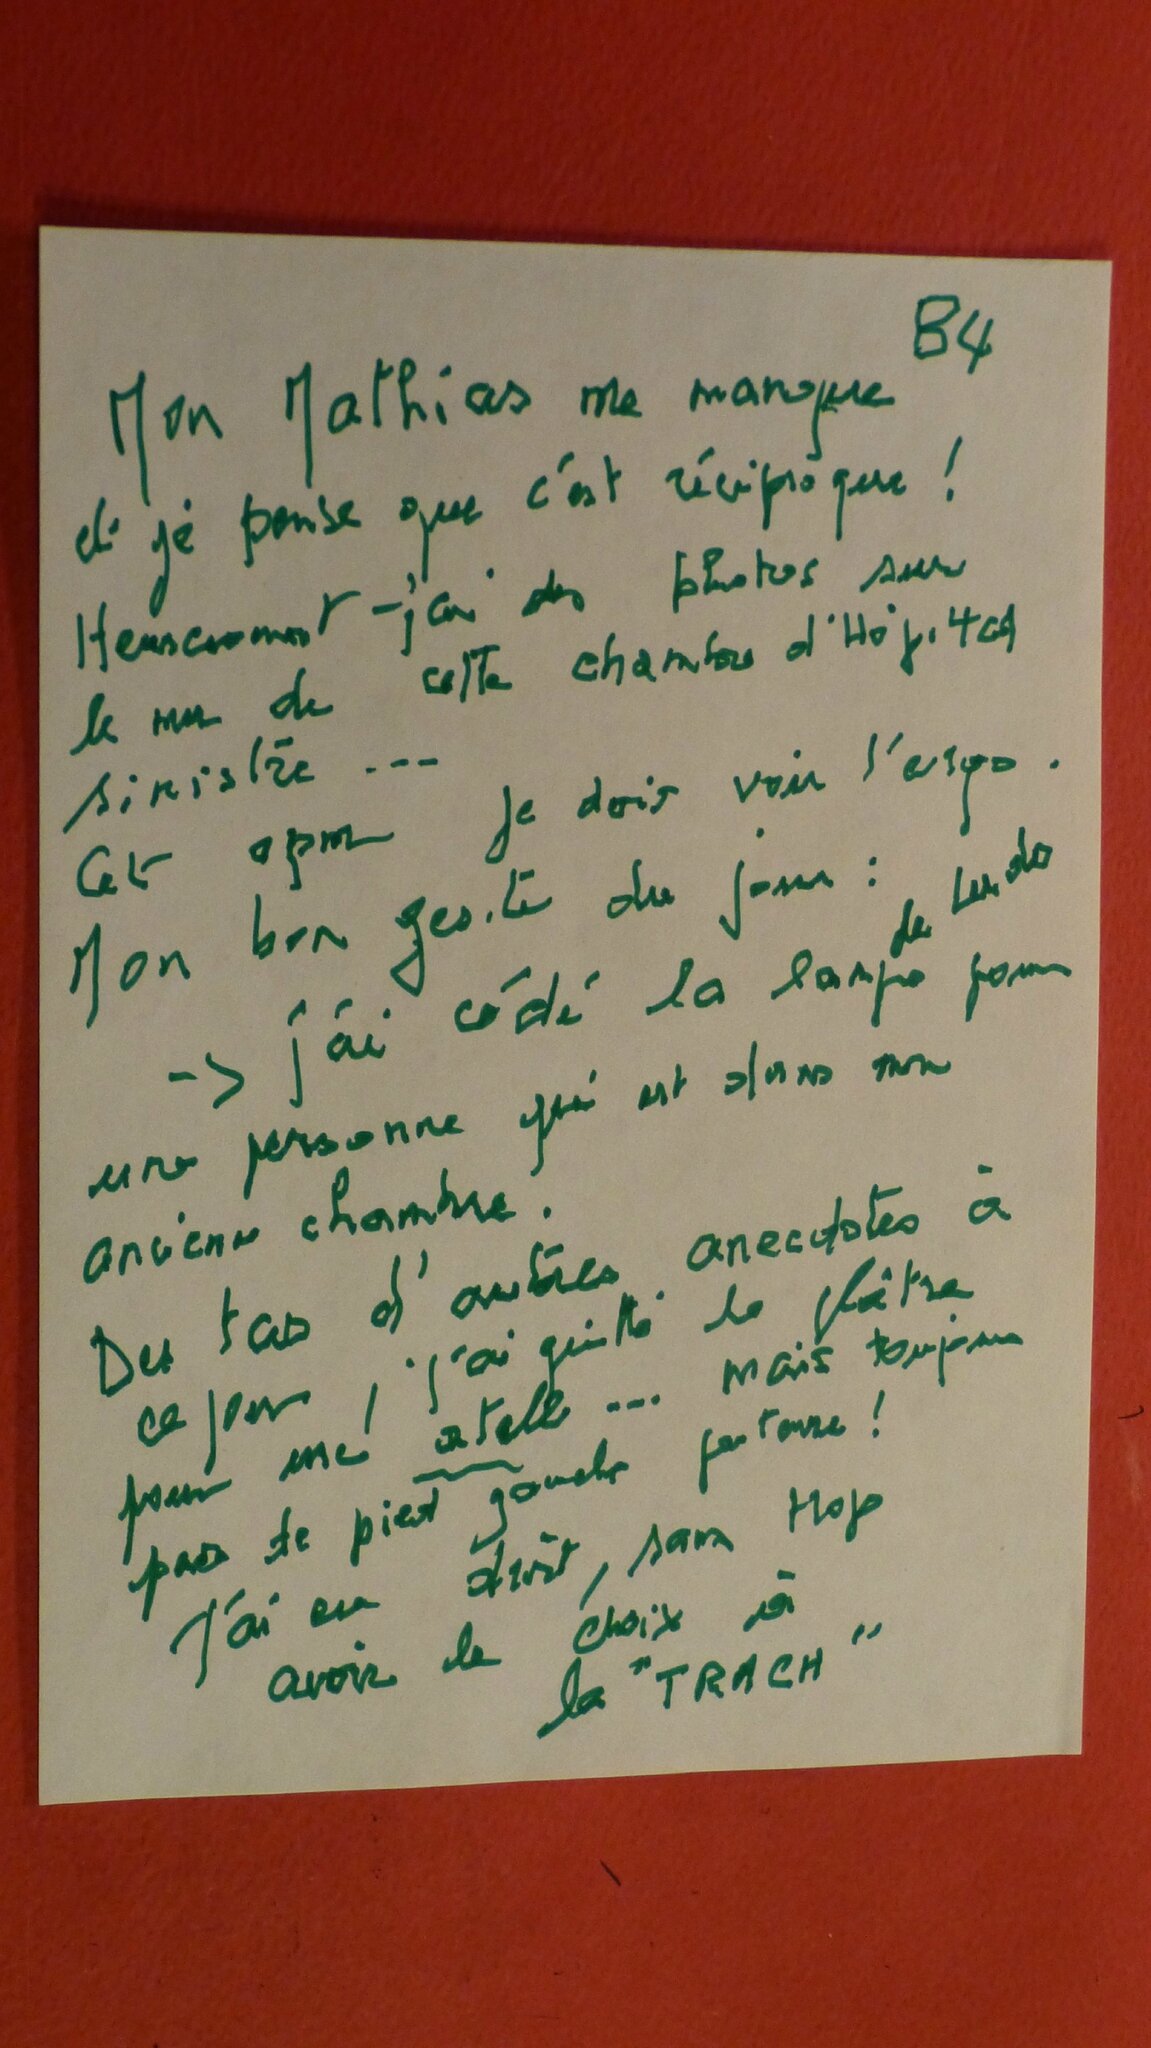 B4
Mon Mathias me manque
et je pense que c'est réciproque !
Heureusement j'ai des photos sur
le mur de cette chambre d'Hôpital
sinistre ---
Cet aprm je dois voir l'ergo.
Mon bon geste du jour :
-> j'ai cédé la lampe de Ludo pour
une personne qui est dans mon
ancienne chambre.
Des tas d'autres anecdotes à
ce jour, j'ai quitté le plâtre
pour une atelle --- mais toujours
pas le pied gauche par terre !
J'ai eu droit, sans trop
avoir le choix à
la "TRACH"